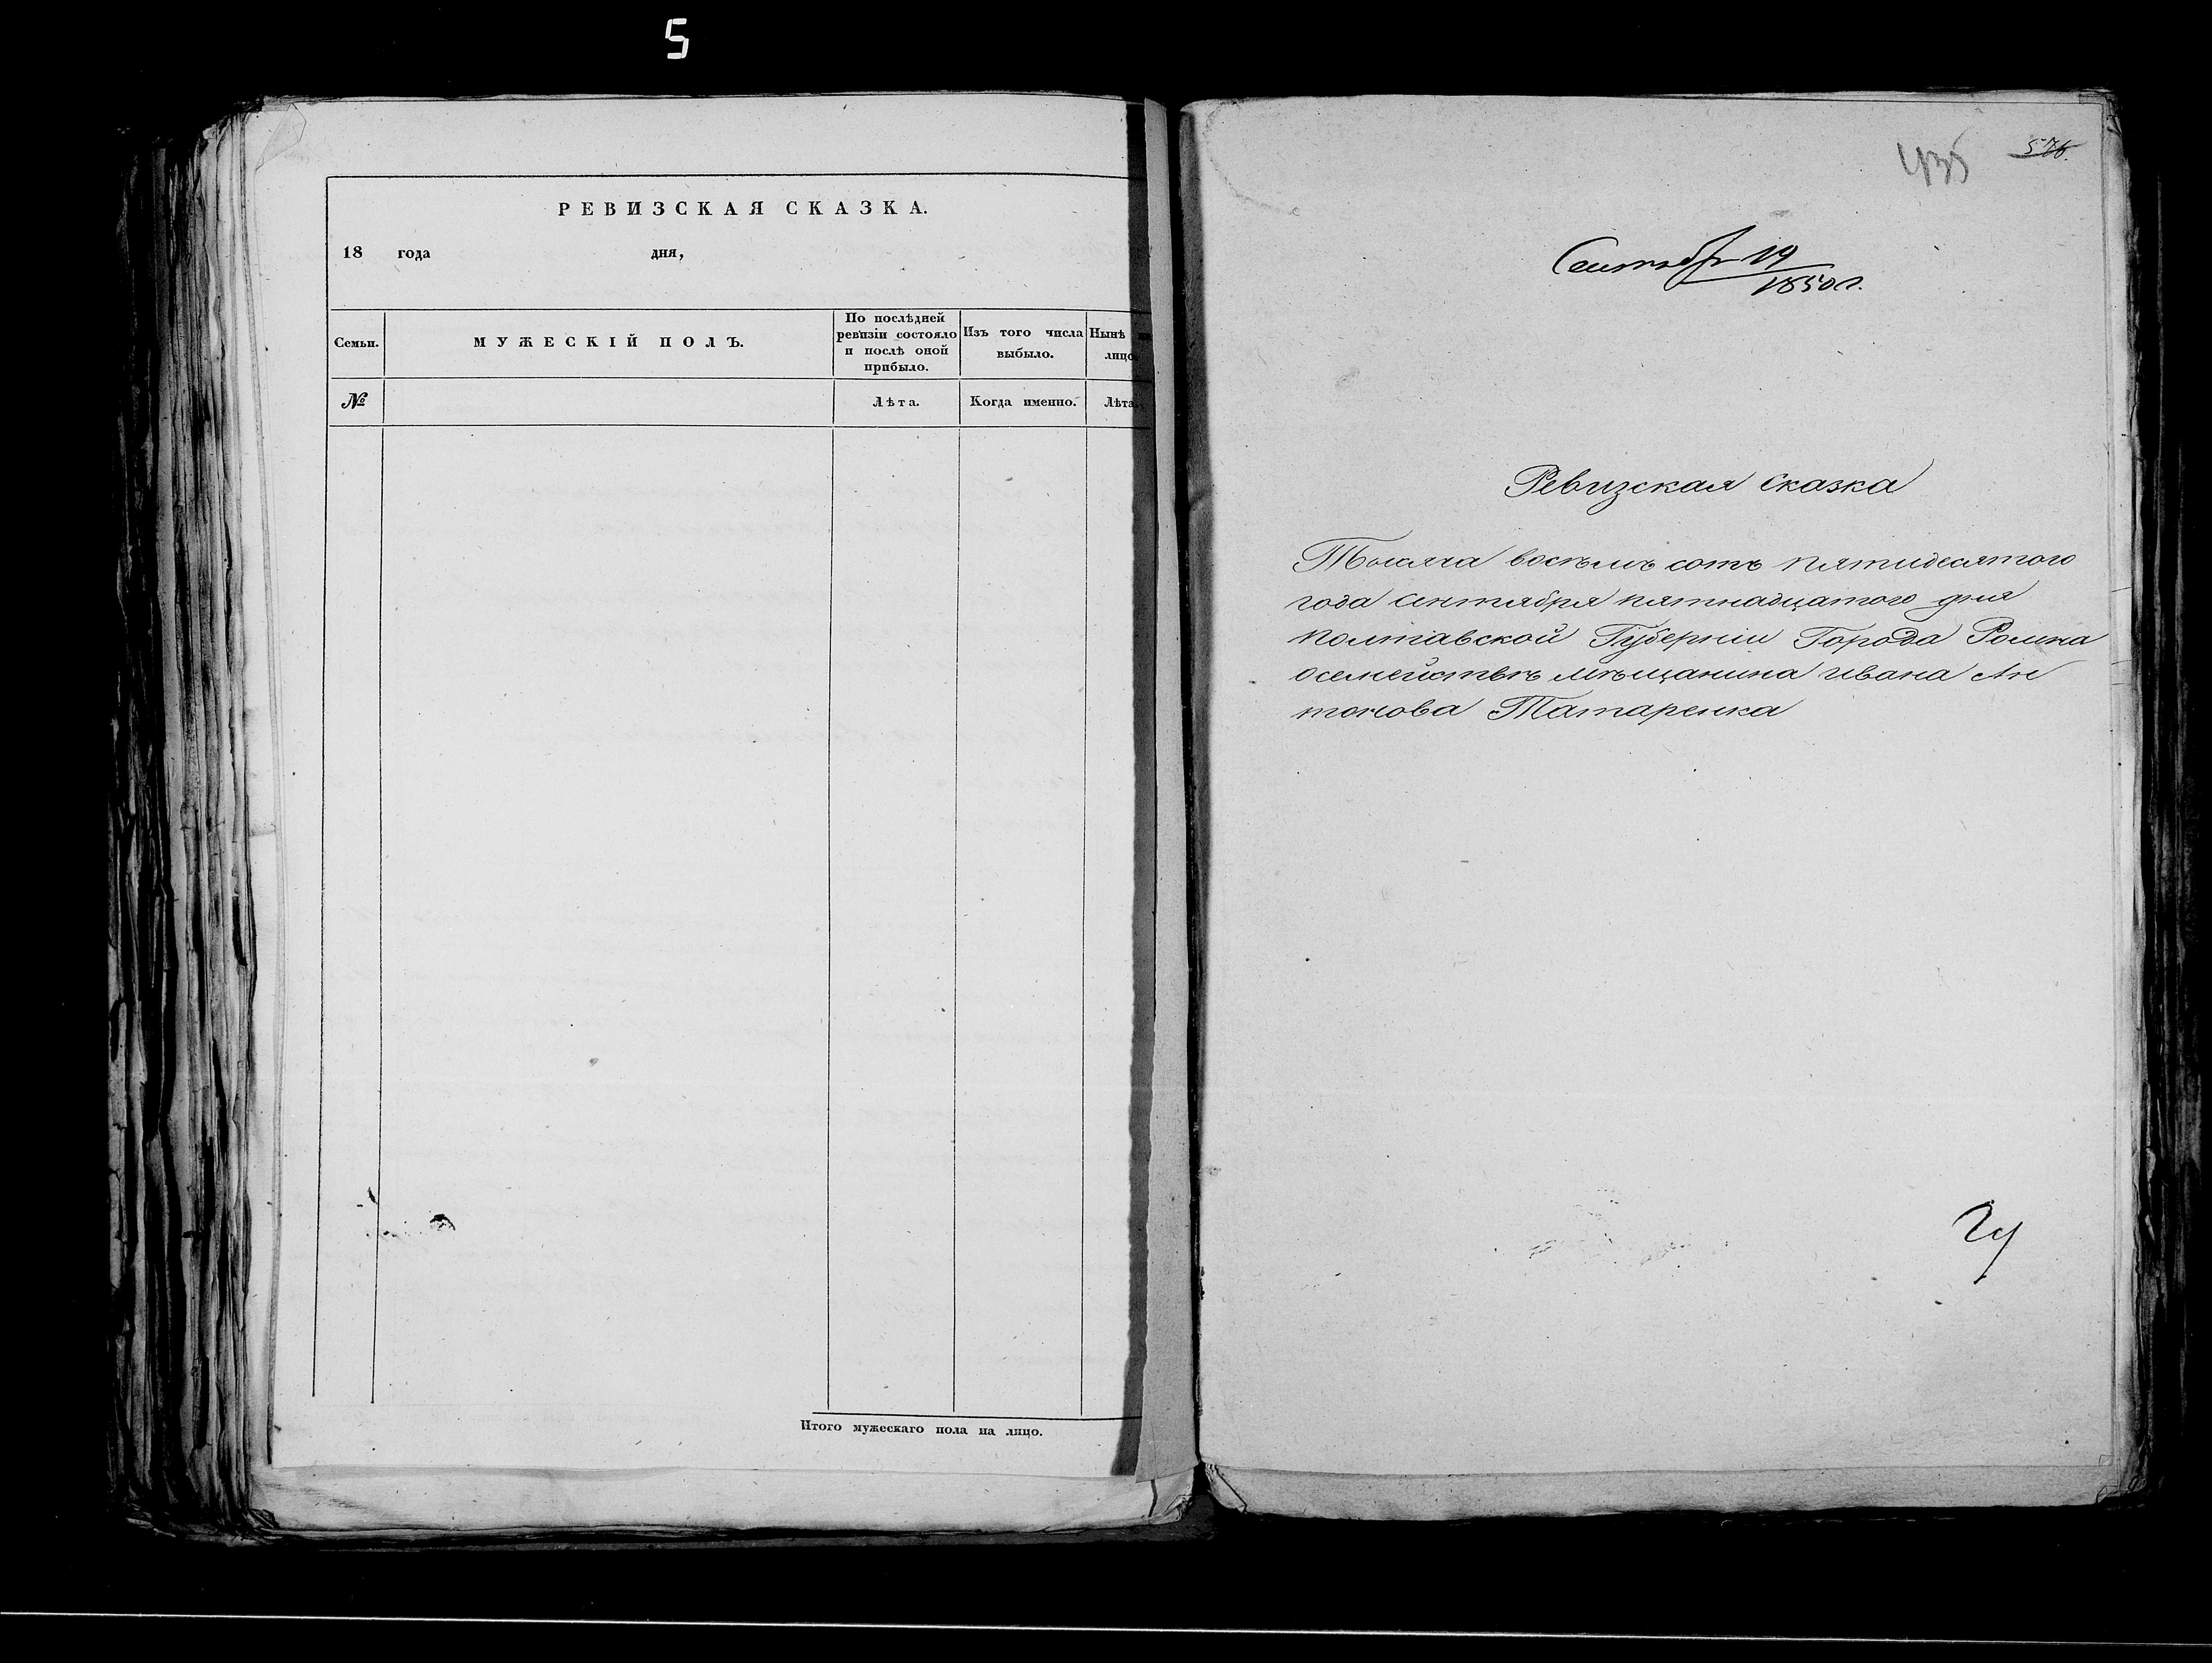 5
РЕВИЗСКАЯ СКАЗКА.
18 года дня,
Семьи.
МУЖЕСКІЙ ПОЛЪ.
По послѣдней
ревизіи состояло
и послѣ оной
прибыло.
Изъ того числа
выбыло.
Нынѣ
лицо
№
Лѣта.
Когда именно.
Лѣта
Итого мужескаго пола на лицо.
435
576.
Сентябр 19
1850 г.
Ревизская Сказка
Тысяча восемъ сотъ пятидесятого
года сентября пятнадцатого дня
полтавской Губерніи Города Ромна
осемействѣ мѣщанина ивана Ан
тонова Татаренка